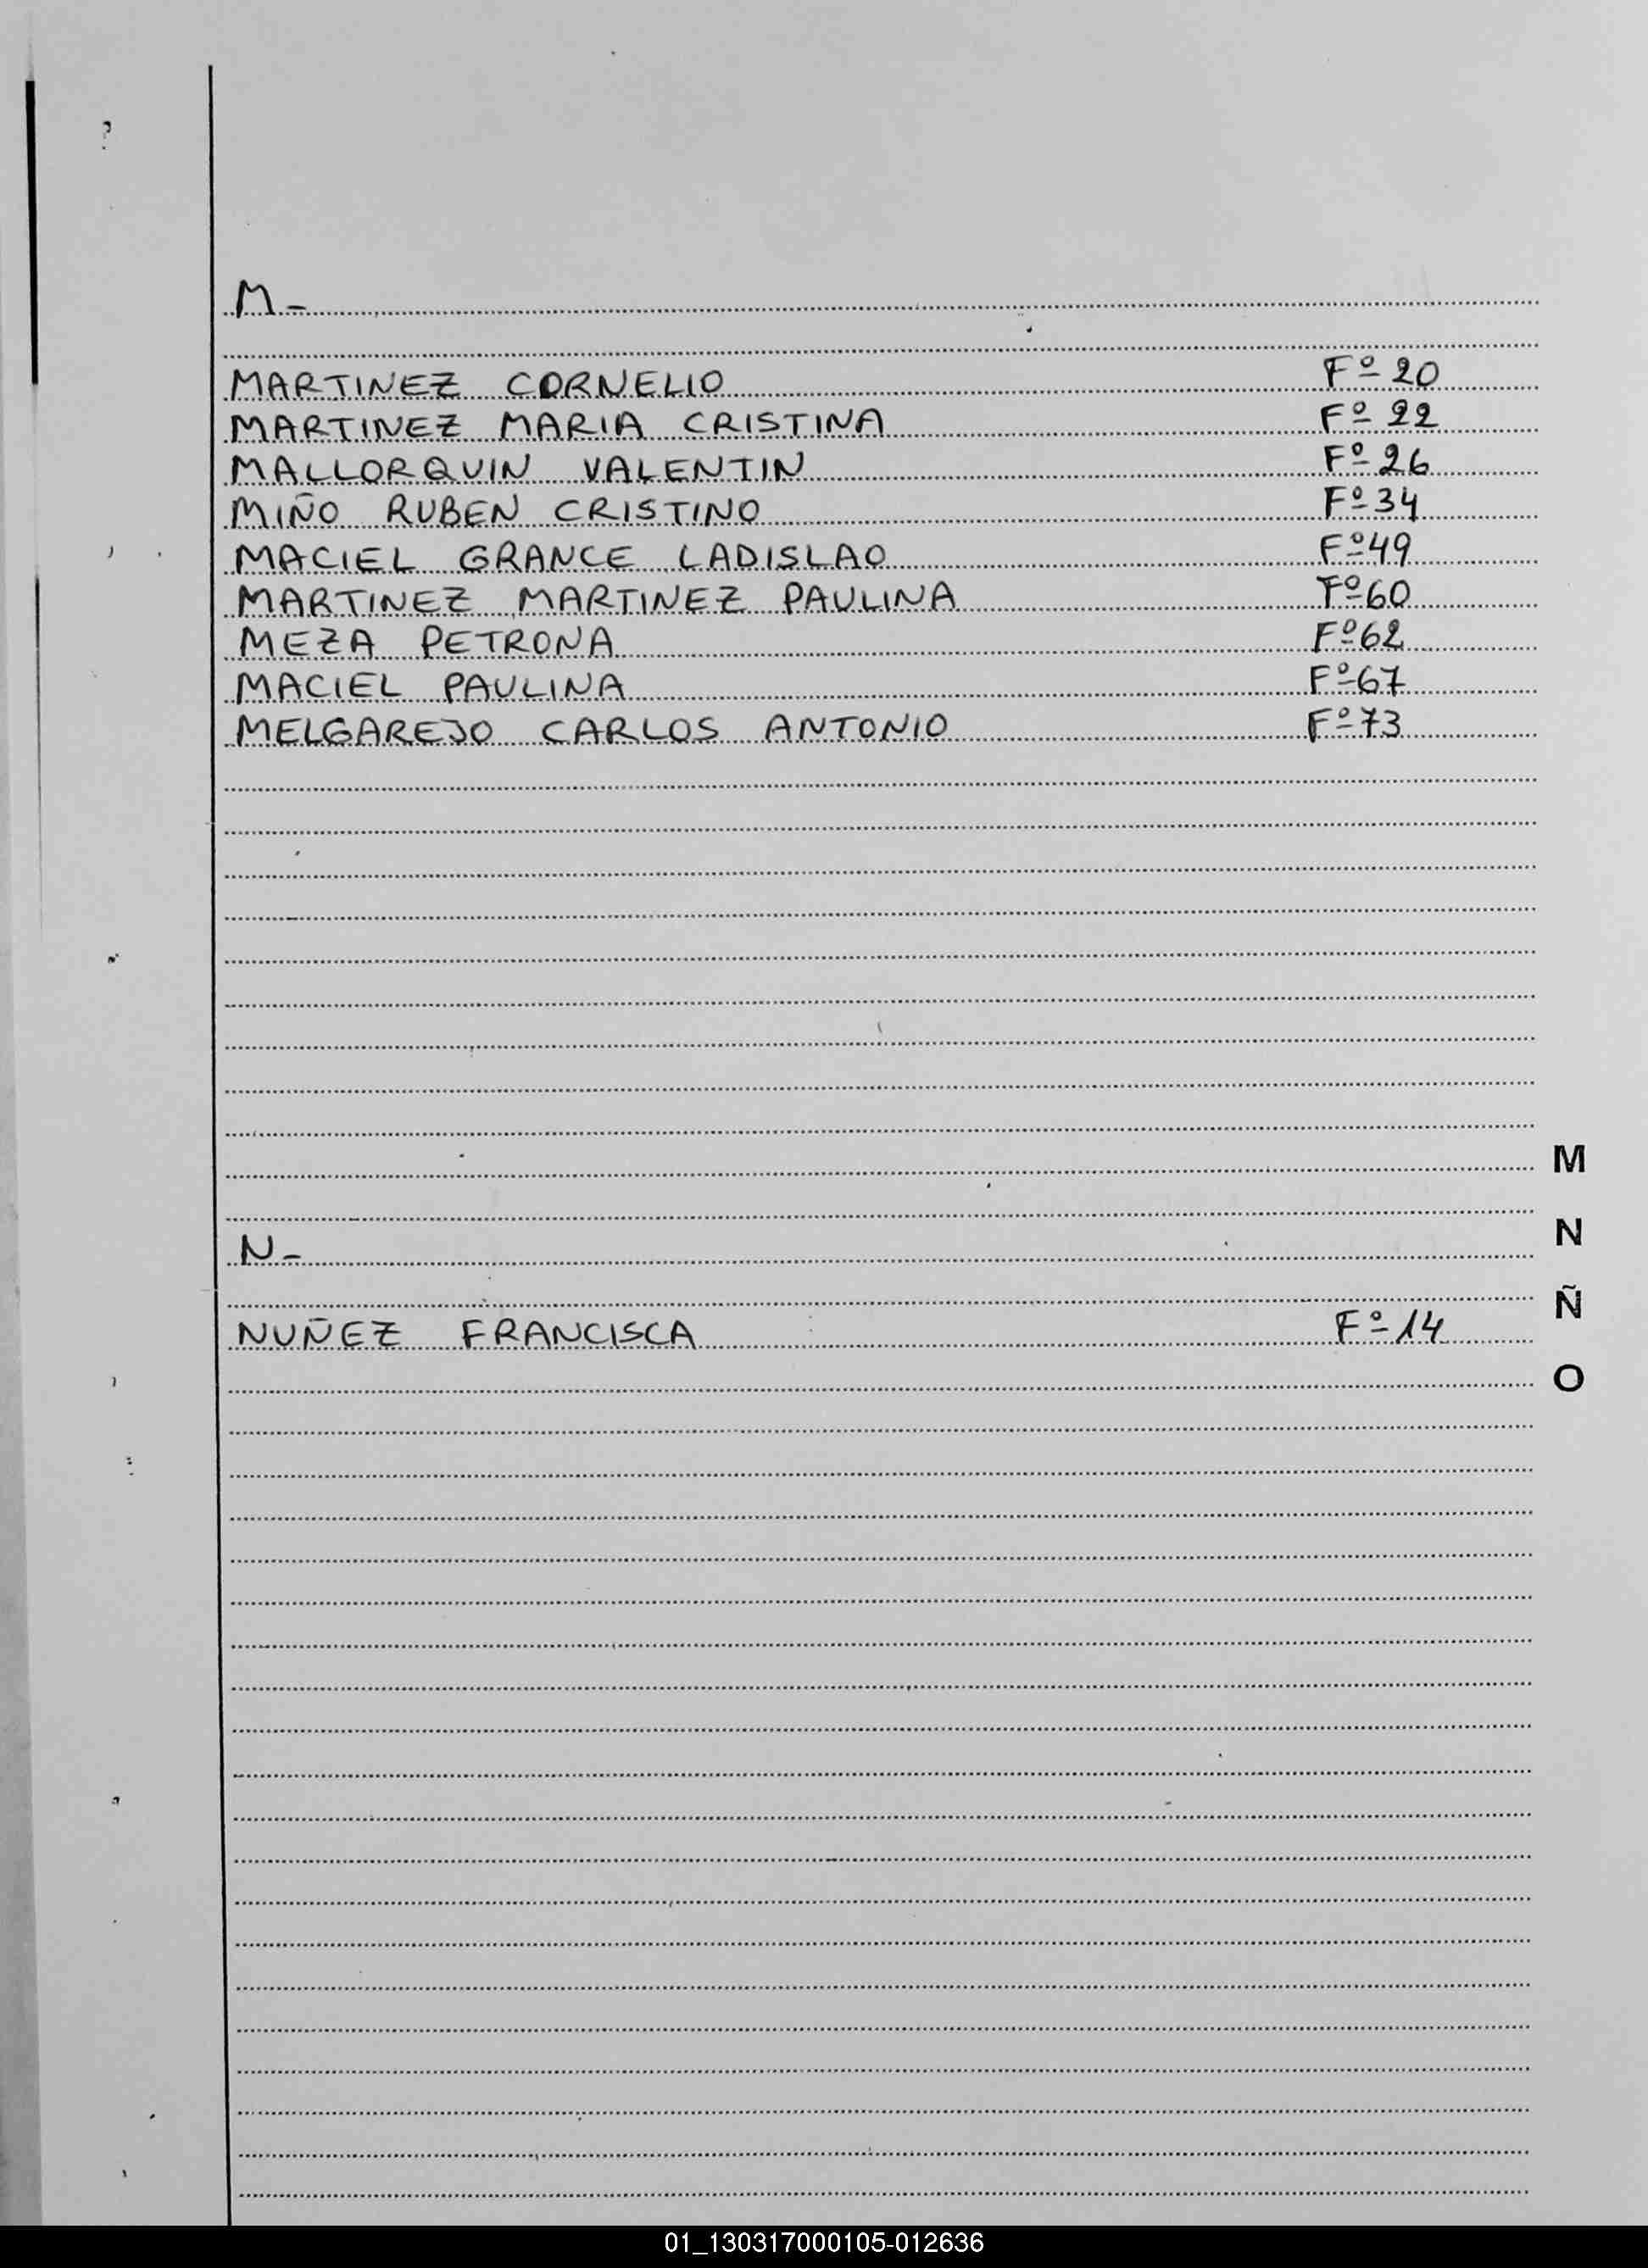 M-
MARTINEZ CORNELIO Fº 20
MARTINEZ MARIA CRISTINA Fº 22
MALLORQUIN VALENTIN Fº 26
MIÑO RUBEN CRISTINO Fº 34
MACIEL GRANCE LADISLAO Fº 49
MARTINEZ MARTINEZ PAULINA Fº 60
MEZA PETRONA Fº 62
MACIEL PAULINA Fº 67
MELGAREJO CARLOS ANTONIO Fº 73
M
N
N-
Ñ
NUÑEZ FRANCISCA Fº 14
O
01_130317000105-012636